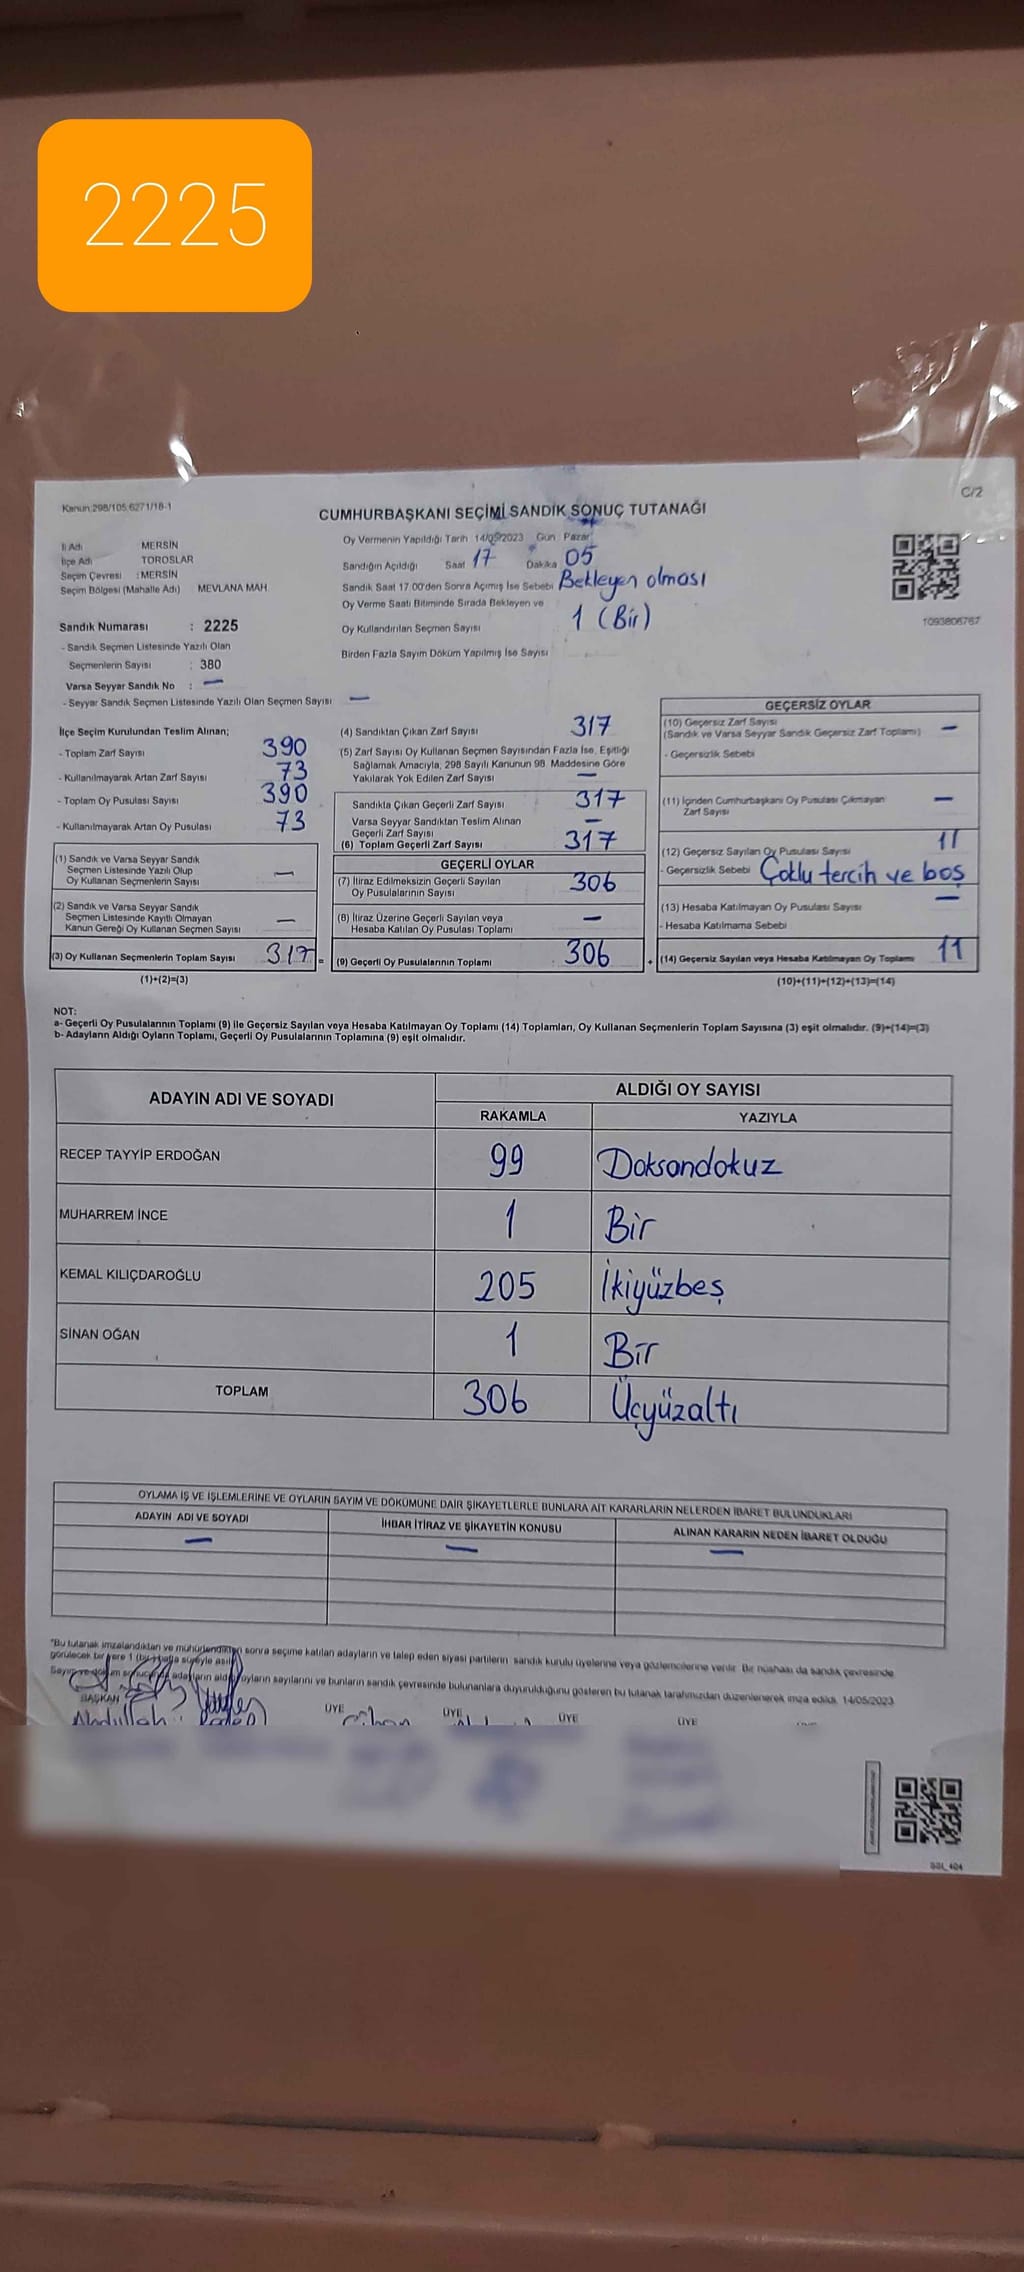 2225
Kanun:298/105,6271/18-1
C/2
CUMHURBAŞKANI SEÇİMİ SANDIK SONUÇ TUTANAĞI
İl Adı MERSİN
İlçe Adı TOROSLAR
Seçim Çevresi : MERSİN
Seçim Bölgesi (Mahalle Adı) MEVLANA MAH.
Oy Vermenin Yapıldığı Tarih 14/05/2023 Gün Pazar
Sandığın Açıldığı Saat 17 Dakika 05
Sandık Saat 17.00'den Sonra Açımış İse Sebebi Bekleyen olması
Oy Verme Saati Bitiminde Sırada Bekleyen ve
Oy Kullandırılan Seçmen Sayısı 1 (Bir)
Birden Fazla Sayım Döküm Yapılmış İse Sayısı
1093806767
Sandık Numarası : 2225
- Sandık Seçmen Listesinde Yazılı Olan
Seçmenlerin Sayısı : 380
Varsa Seyyar Sandık No : —
- Seyyar Sandık Seçmen Listesinde Yazılı Olan Seçmen Sayısı —
İlçe Seçim Kurulundan Teslim Alınan;
- Toplam Zarf Sayısı 390
- Kullanılmayarak Artan Zarf Sayısı 73
- Toplam Oy Pusulası Sayısı 390
- Kullanılmayarak Artan Oy Pusulası 73
(1) Sandık ve Varsa Seyyar Sandık
Seçmen Listesinde Yazılı Olup
Oy Kullanan Seçmenlerin Sayısı —
(2) Sandık ve Varsa Seyyar Sandık
Seçmen Listesinde Kayıtlı Olmayan
Kanun Gereği Oy Kullanan Seçmen Sayısı —
(3) Oy Kullanan Seçmenlerin Toplam Sayısı 317 =
(1)+(2)=(3)
(4) Sandıktan Çıkan Zarf Sayısı 317
(5) Zarf Sayısı Oy Kullanan Seçmen Sayısından Fazla İse, Eşitliği
Sağlamak Amacıyla, 298 Sayılı Kanunun 98. Maddesine Göre
Yakılarak Yok Edilen Zarf Sayısı —
Sandıkta Çıkan Geçerli Zarf Sayısı 317
Varsa Seyyar Sandıktan Teslim Alınan
Geçerli Zarf Sayısı —
(6) Toplam Geçerli Zarf Sayısı 317
GEÇERLİ OYLAR
(7) İtiraz Edilmeksizin Geçerli Sayılan
Oy Pusulalarının Sayısı 306
(8) İtiraz Üzerine Geçerli Sayılan veya
Hesaba Katılan Oy Pusulası Toplamı —
(9) Geçerli Oy Pusulalarının Toplamı 306 +
GEÇERSİZ OYLAR
(10) Geçersiz Zarf Sayısı
(Sandık ve Varsa Seyyar Sandık Geçersiz Zarf Toplamı) —
- Geçersizlik Sebebi
(11) İçinden Cumhurbaşkanı Oy Pusulası Çıkmayan
Zarf Sayısı —
(12) Geçersiz Sayılan Oy Pusulası Sayısı 11
- Geçersizlik Sebebi Çoklu tercih ve boş
(13) Hesaba Katılmayan Oy Pusulası Sayısı —
- Hesaba Katılmama Sebebi
(14) Geçersiz Sayılan veya Hesaba Katılmayan Oy Toplamı 11
(10)+(11)+(12)+(13)=(14)
NOT:
a- Geçerli Oy Pusulalarının Toplamı (9) ile Geçersiz Sayılan veya Hesaba Katılmayan Oy Toplamı (14) Toplamları, Oy Kullanan Seçmenlerin Toplam Sayısına (3) eşit olmalıdır. (9)+(14)=(3)
b- Adayların Aldığı Oyların Toplamı, Geçerli Oy Pusulalarının Toplamına (9) eşit olmalıdır.
ADAYIN ADI VE SOYADI ALDIĞI OY SAYISI
RAKAMLA YAZIYLA
RECEP TAYYİP ERDOĞAN 99 Doksandokuz
MUHARREM İNCE 1 Bir
KEMAL KILIÇDAROĞLU 205 İkiyüzbeş
SİNAN OĞAN 1 Bir
TOPLAM 306 Üçyüzaltı
OYLAMA İŞ VE İŞLEMLERİNE VE OYLARIN SAYIM VE DÖKÜMÜNE DAİR ŞİKAYETLERLE BUNLARA AİT KARARLARIN NELERDEN İBARET BULUNDUKLARI
ADAYIN ADI VE SOYADI İHBAR İTİRAZ VE ŞİKAYETİN KONUSU ALINAN KARARIN NEDEN İBARET OLDUĞU
— — —
*Bu tutanak imzalandıktan ve mühürlendikten sonra seçime katılan adayların ve talep eden siyasi partilerin sandık kurulu üyelerine veya gözlemcilerine verilir. Bir nüshası da sandık çevresinde
görülecek bir yere 1 (bir) hafta süreyle asılır.
Sayım ve döküm sonucunda adayların aldığı oyların sayılarını ve bunların sandık çevresinde bulunanlara duyurulduğunu gösteren bu tutanak tarafımızdan düzenlenerek imza edildi. 14/05/2023
BAŞKAN ÜYE ÜYE ÜYE ÜYE
Abdullah